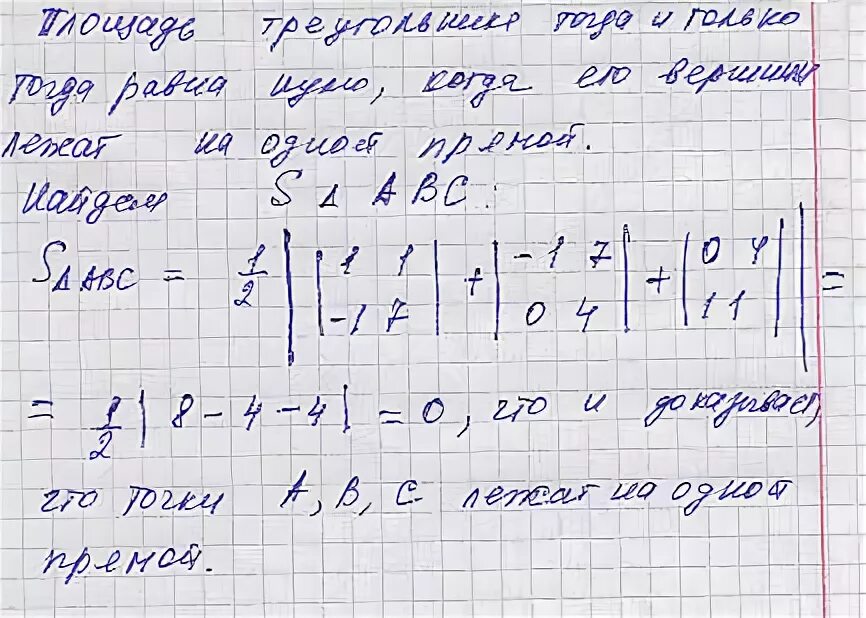 Площадь треугольника тогда и только
тогда равна нулю, когда его вершины
лежат на одной прямой.
Найдем S Δ ABC :
S Δ ABC = 1/2 | |1 1; -1 7| + |-1 7; 0 4| + |0 4; 1 1| | =
= 1/2 | 8 - 4 - 4 | = 0, что и доказывает,
что точки A, B, C лежат на одной
прямой.